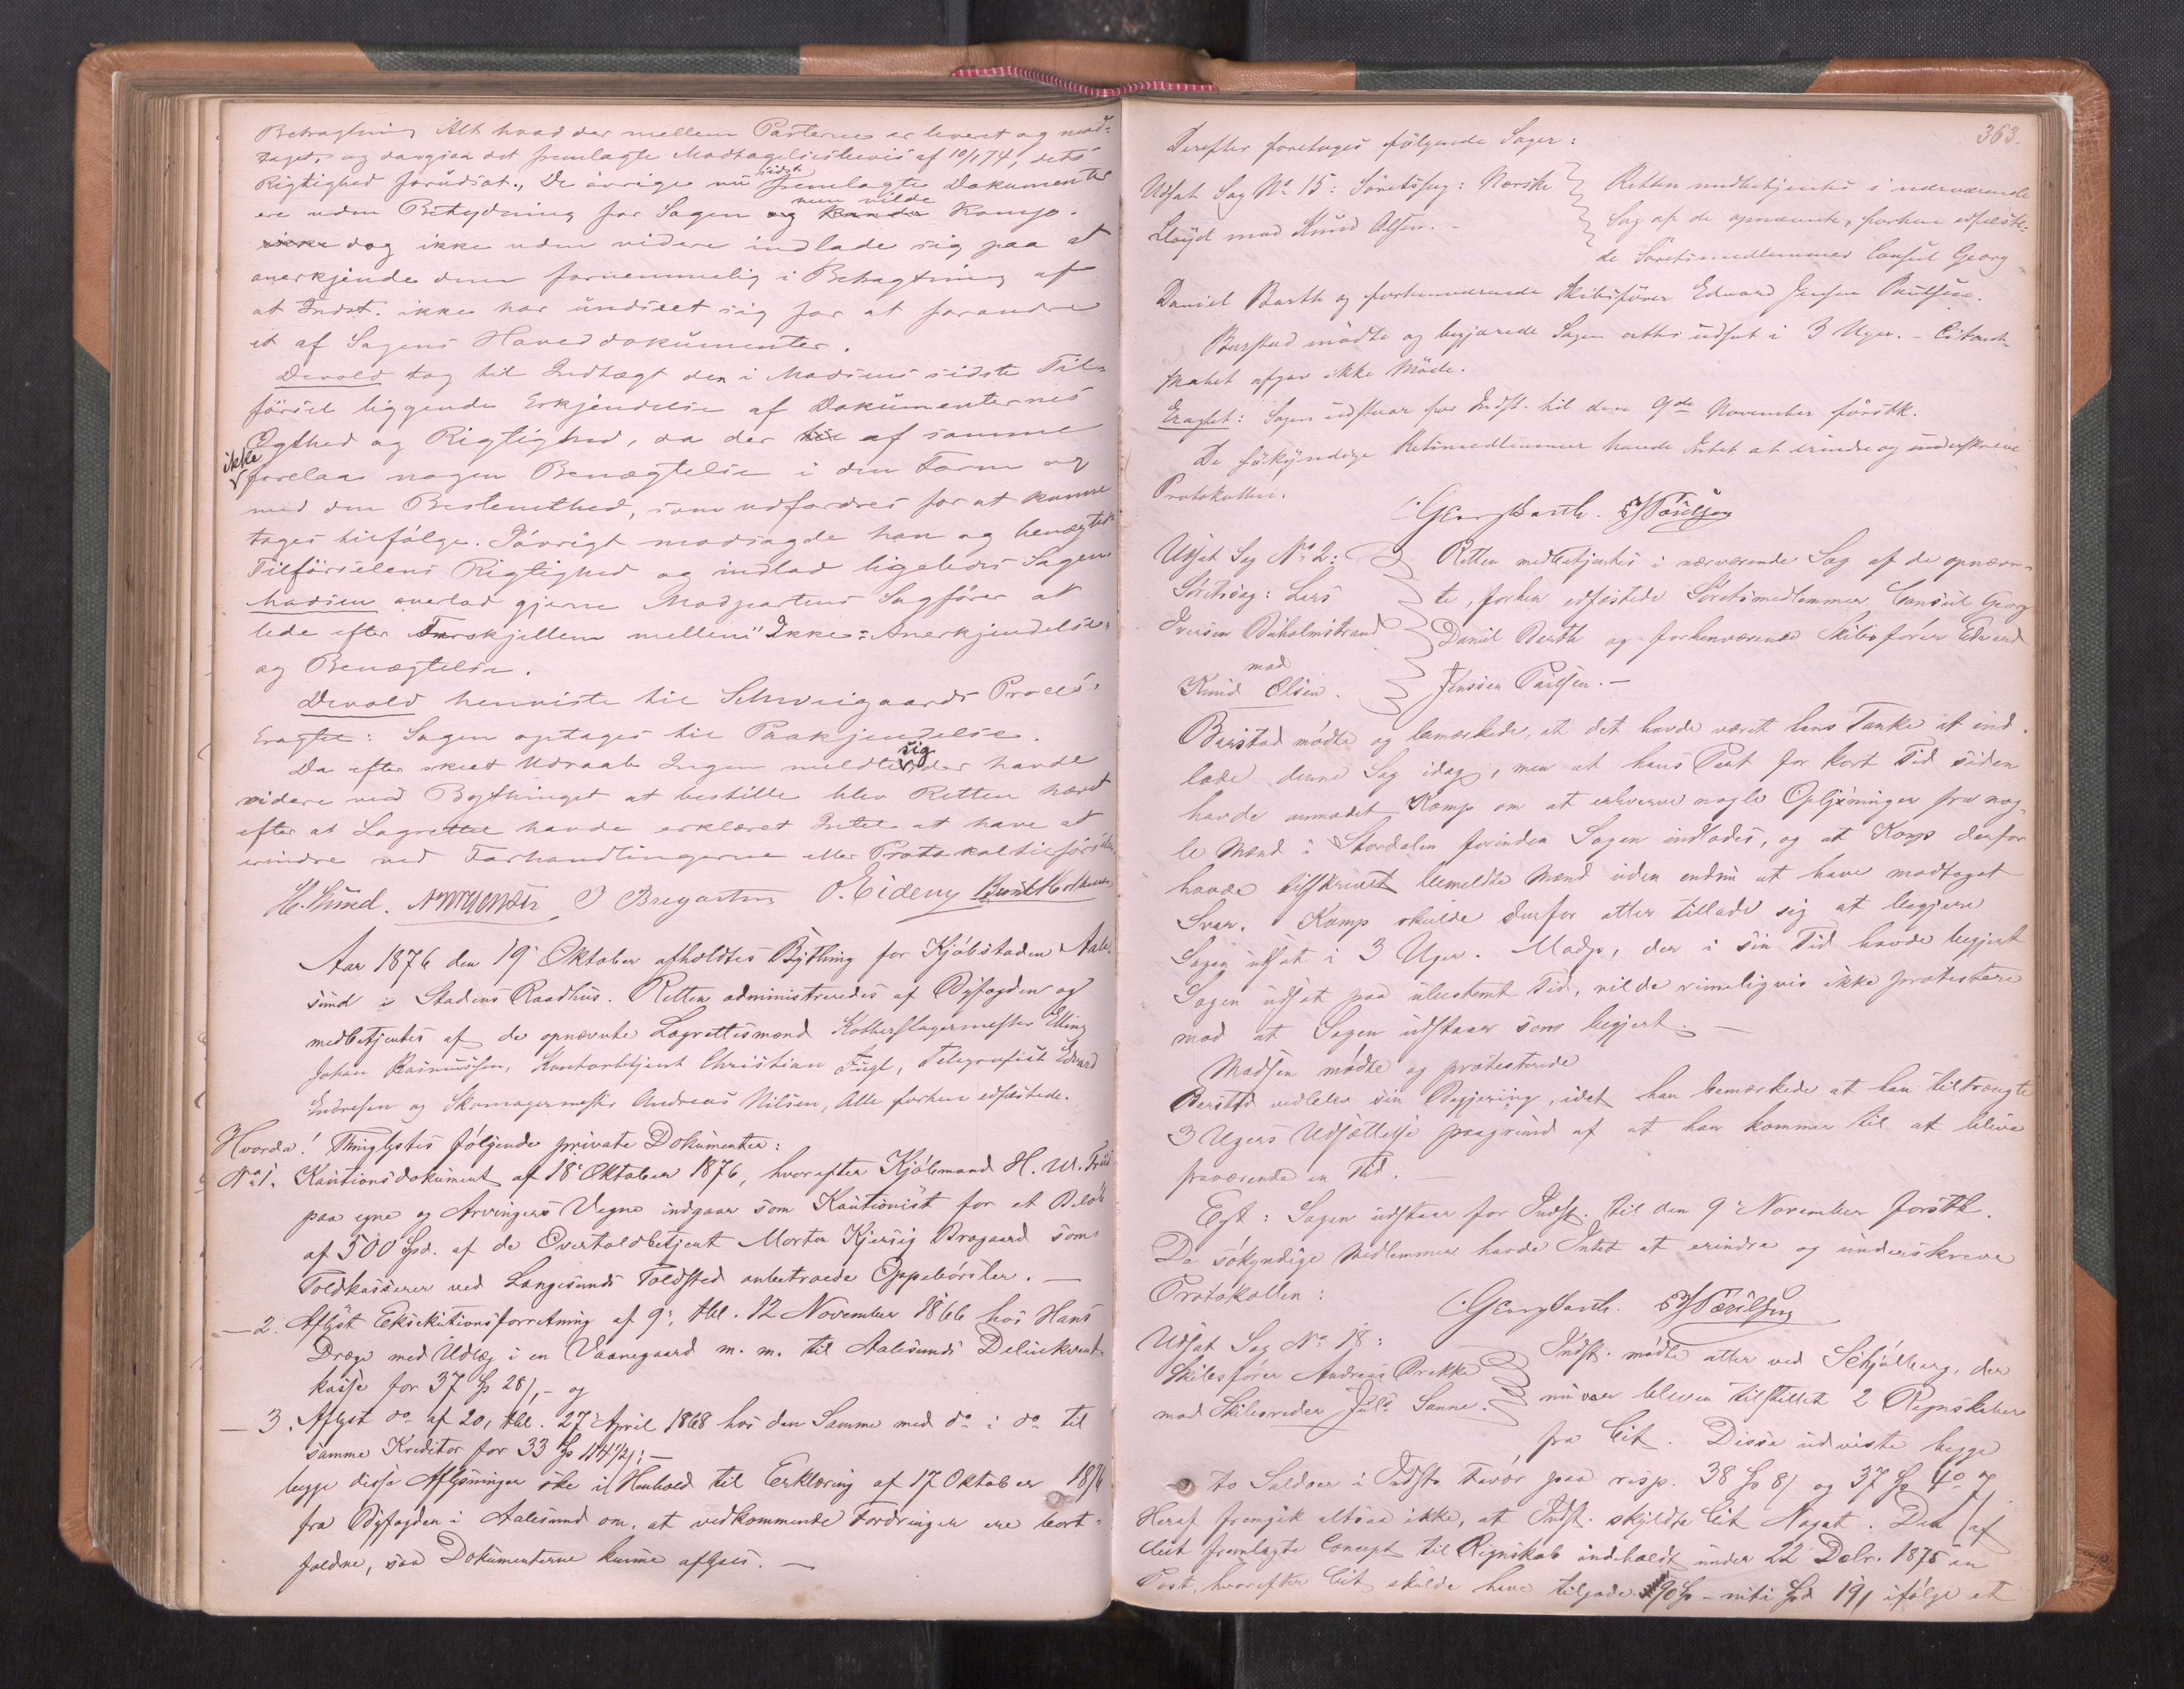 Betragtning Alt hvad der mellem Parterne er leveret og mod-
taget, og davgiaa det fremlagte Modtagelsesbevis af 10/1 74, dets
Rigtighed forudsat. De øvrige nu sidst fremlagte Dokumenter
ere uden Betydning for Sagen og kunde men vilde Komp.
ikke dog ikke uden videre indlade sig paa at
anerkjende dem fornemmelig i Betragtning af
at Indst. ikke har undseet sig for at forandre
et af Sagens Hoveddokumenter.
Devold tog til Indtægt den i Madsens sidste Til-
førsel liggende Erkjendelse af Dokumenternes
Ægthed og Rigtighed, da der til af samme
ikke forelaa nogen Benægtelse i den Form og
med den Bestemthed, som udfordres for at kunne
tages tilfølge. Iøvrigt modsagde han og benægtede
Tilførselens Rigtighed og indlod ligeledes Sagen
Madsen overlod gjerne Modpartens Sagfører at
lede efter Forskjellen mellem "Ikke-Anerkjendelse"
og Benægtelse.
Devold henviste til Schweigaards Proces.
Eragtet: Sagen optages til Paakjendelse.
Da efter skeet Udraab Ingen meldte sig der havde
videre ved Bythinget at bestille blev Retten hævet
efter at Lagrettet havde erklæret Intet at have at
erindre ved Forhandlingerne eller Protokoltilførslen.
H. Lund. O. Eideny
Aar 1876 den 19 Oktober afholdtes Bything for Kjøbstaden Aale-
sund i Stadens Raadhus. Retten administreredes af Byfogden og
medbetjentes af de opnævnte Lagrettesmænd Kobberslagermester Elling
Johan Rasmussen, Kontorbetjent Christian Fugl, Telegrafist Edvard
Endresen og Skomagermester Andreas Nilsen, Alle forhen edfæstede.
Hvorda! Thinglystes følgende private Dokumenter:
No 1. Kautionsdokument af 18 Oktober 1876, hvorefter Kjøbmand H. M.
paa egne og Arvingers Vegne indgaar som Kautionist for et Beløb
af 500 Spd. af de Overtoldbetjent Morten Kjersig Bragaard som
Toldkasserer ved Langesunds Toldsted anbetroede Oppebørsler. —
— 2. Aflyst Eksekutionsforretning af 9, thl. 12 November 1866 hos Hans
Drage med Udlæg i en Vaanegaard m. m. til Aalesunds Delinkvent-
kasse for 37 Sp 28/, - og
— 3. Aflyst do af 20, thl. 27 April 1868 hos den Samme med do i do til
samme Kreditor for 33 Sp 114½/; —
begge disse Aflysninger ske i Henhold til Erklæring af 17 Oktober 1876
fra Byfogden i Aalesund om, at vedkommende Fordringer ere bort-
faldne, saa Dokumenterne kunne aflyses. —
363.
Derefter foretoges følgende Sager:
Udsat Sag No 15: Søretssag: Norske
Lloyd mod Knud Olsen. -
Retten medbetjentes i nærværende
Sag af de opnævnte, forhen edfæste-
de Søretsmedlemmer Consul Georg
Daniel Barth og forhenværende Skibsfører Edvard Jensen Paulsen.
Burstad mødte og begjærede Sagen atter udsat i 3 Uger. - Citant-
skabet afgav ikke Møde.
Eragtet: Sagen udstaar for Indst. til den 9de November førstk.
De søkyndige Retsmedlemmer havde Intet at erindre og underskreve
Protokollen.
Georg Barth. E J Paulsen
Udsat Sag No 2:
Søretssag: Lars
Iversen Buholmstrand
mod
Knud Olsen.
Retten medbetjentes i nærværende Sag af de opnævn-
te, forhen edfæstede Søretsmedlemmer Consul Georg
Daniel Barth og forhenværende Skibsfører Edvard
Jenssen Paulsen. —
Burstad mødte og bemærkede, at det havde været hans Tanke at ind-
lade denne Sag idag, men at hans Part for kort Tid siden
havde anmodet Komp om at erhverve nogle Oplysninger fra nog-
le Mænd i Stordalen forinden Sagen indlodes, og at Komp derfor
havde tilskrevet bemeldte Mænd uden endnu at have modtaget
Svar. Komp skulde derfor atter tillade sig at begjere
Sagen udsat i 3 Uger. Madp, der i sin Tid havde begjert
Sagen udsat paa ubestemt Tid, vilde rimeligvis ikke protestere
mod at Sagen udstaaer som begjert. —
Madsen mødte og protesterede
Burstad vedblev sin Begjering, idet han bemærkede at han tiltrængte
3 Ugers Udsættelse paagrund af at han kommer til at blive
fraværende en Tid. —
Egt: Sagen udstaar for Indst. til den 9 November førstk.
De søkyndige Medlemmer havde Intet at erindre og underskreve
Protokollen:
Georg Barth. E J Paulsen
Udsat Sag No 18:
Skibsfører Andreas Brekke
mod Skibsreder Juls Sanne.
Indst. mødte atter ved Schjølberg, der
nu var bleven tilstillet 2 Regnskaber
fra Cit. Disse udviste begge
to Saldoer i Indsts Favør paa resp. 38 Sp 8/ og 37 Sp 4o 7/
Heraf fremgik altsaa ikke, at Indst. skyldte Cit Noget. Det af
Cit fremlagte Concept til Regnskab indeholdt under 22 Debr. 1875 en
Post, hvorefter Cit skulde have tilgode 90 Sp - niti Spd 19/ ifølge et